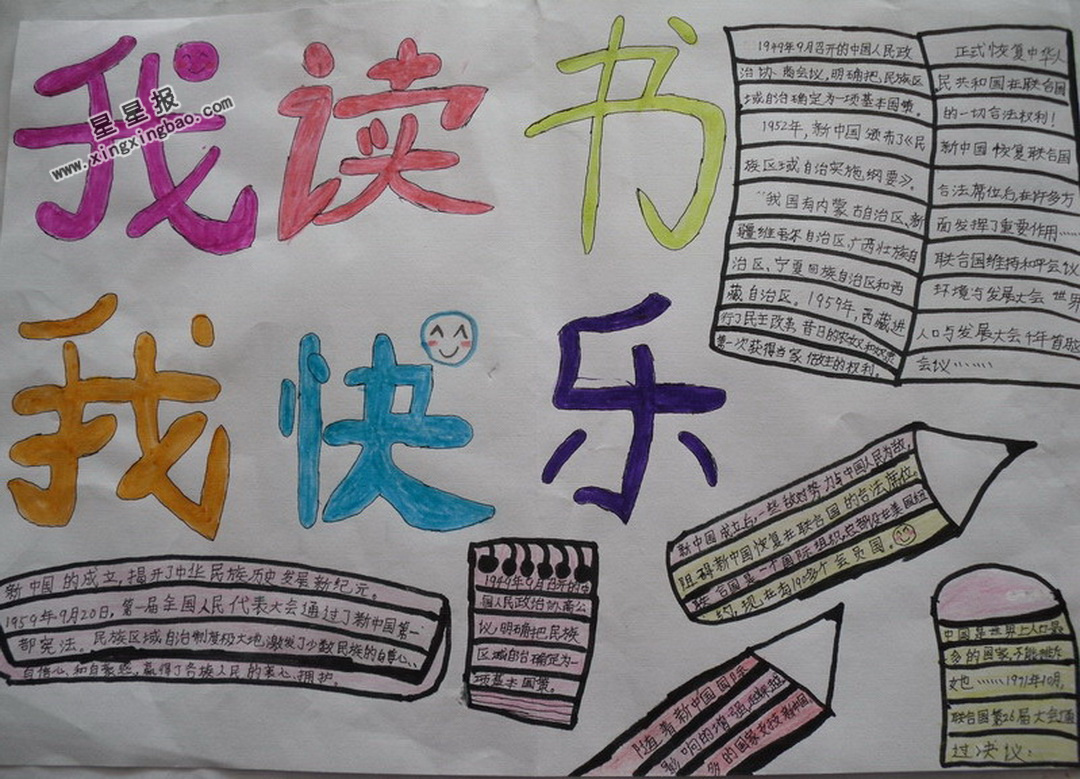 我读书
我快乐
星星报
www.xingxingbao.com
1949年9月召开的中国人民政
治协商会议,明确把,民族区
域自治确定为一项基本国策。
1952年,新中国颁布了《民
族区域自治实施纲要》。
"我国有内蒙古自治区、新
疆维吾尔自治区、广西壮族自
治区、宁夏回族自治区和西
藏自治区。1959年,西藏进
行了民主改革,昔日的农奴和奴隶
第一次获得当家做主的权利。
正式恢复中华人
民共和国在联合国
的一切合法权利!
新中国恢复联合国
合法席位后,在许多方
面发挥了重要作用……
联合国维持和平会议
环境与发展大会 世界
人口与发展大会 千年首脑
会议……
新中国成立后,一些敌对势力与中国人民为敌,
阻碍新中国恢复在联合国的合法席位,
联合国是一个国际组织,总部设在美国纽
约,现在有190多个会员国。
新中国的成立,揭开了中华民族历史发展新纪元。
1959年9月20日,第一届全国人民代表大会通过了新中国第一
部宪法。民族区域自治制度极大地激发了少数民族的自尊心、
自信心,和自豪感,赢得了各族人民的衷心、拥护。
1949年9月召开的中
国人民政治协商会
议,明确把民族
区域自治确定为一
项基本国策。
随着新中国国际
影响的增强,越来越
多的国家支持新中国
中国是世界上人口最
多的国家,不能排斥
她……1971年10月,
联合国第26届大会通
过决议: